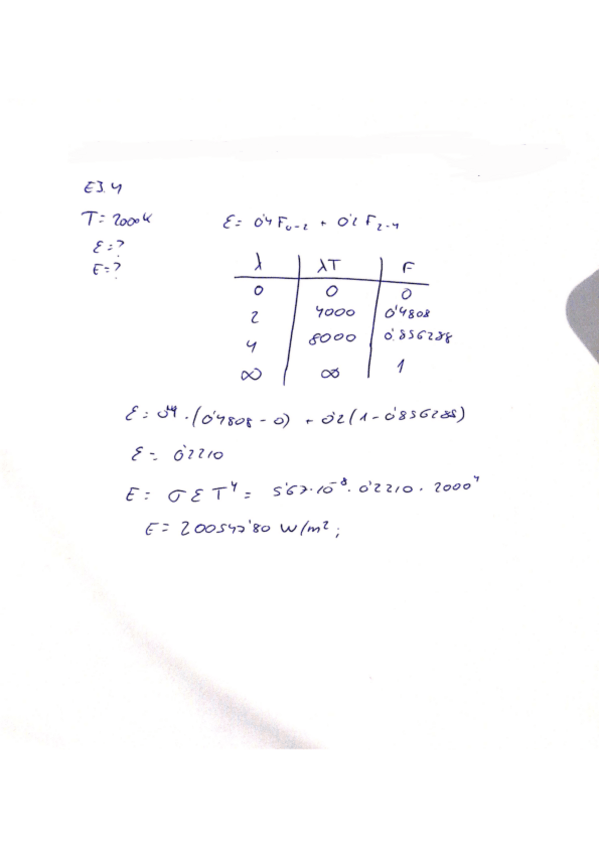 E3.4
T= 2000K
ε= 0'4 F₀₋₂ + 0'2 F₂₋₄
ε=?
E=?
λ | λT | F
0 | 0 | 0
2 | 4000 | 0'4808
4 | 8000 | 0'856288
∞ | ∞ | 1
ε= 0'4 · (0'4808 - 0) + 0'2 (1 - 0'856288)
ε= 0'2210
E= σ ε T⁴ = 5'67·10⁻⁸ · 0'2210 · 2000⁴
E= 200543'80 W/m²;